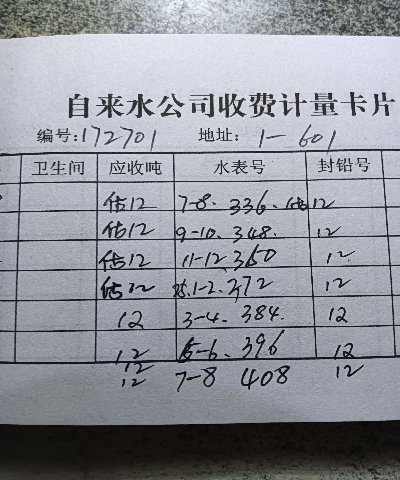 自来水公司收费计量卡片
编号:172701 地址: 1-601
卫生间 应收吨 水表号 封铅号
估12 7-8. 336. 估12
估12 9-10. 348. 12
估12 11-12. 360 12
估12 25.1-2. 372 12
12 3-4. 384. 12
12 5-6. 396 12
12 7-8 408 12